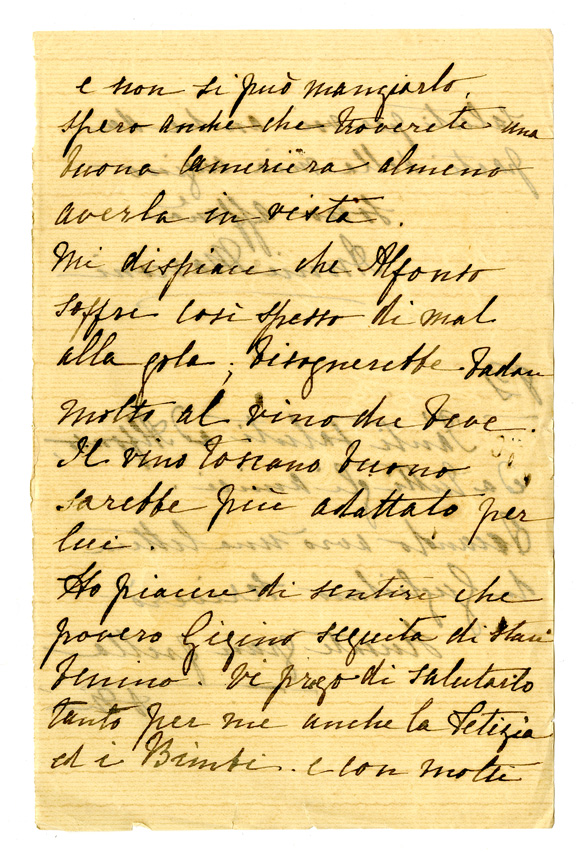 e non si può mangiarlo.
spero anche che troverete una
buona Cameriera almeno
averla in vista.
Mi dispiace che Alfonso
soffre così spesso di mal
alla gola; bisognerebbe badare
molto al vino che beve.
Il vino toscano buono
sarebbe più adattato per
lui.
Ho piacere di sentire che
povero Gigino seguita di stare
benino. Vi prego di salutarlo
tanto per me anche la Letizia
ed i Bimbi. e con molti